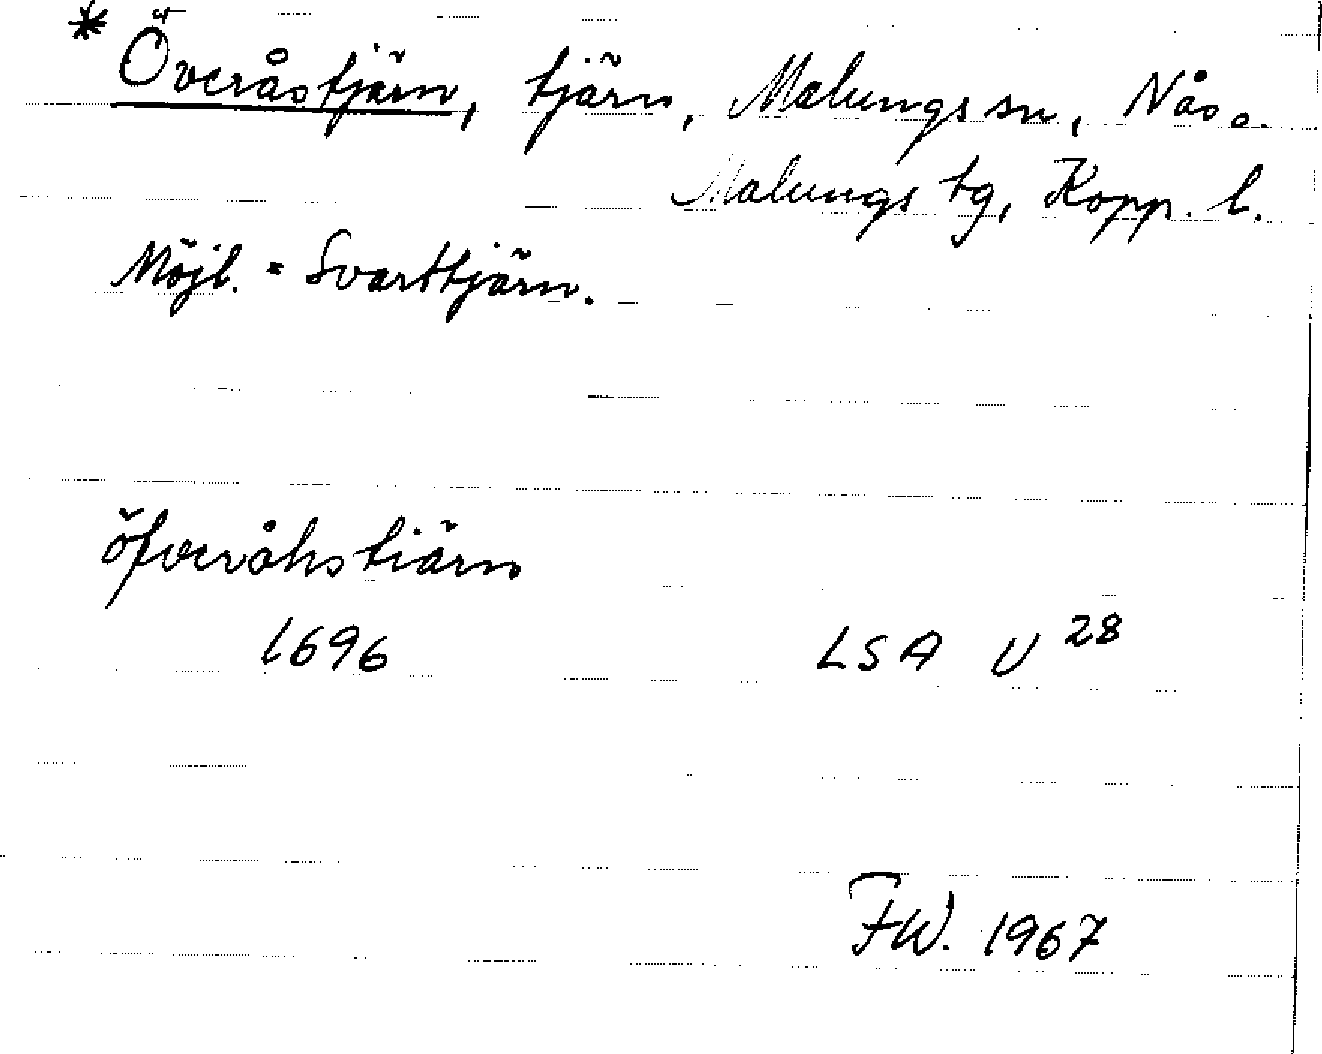 * Överåstjärn, tjärn, Malungs sn, Nås o.
Malungs tg, Kopp. l.
Möjl. = Svarttjärn.
öfveråhstiärn
1696 LSA U 28
FW. 1967